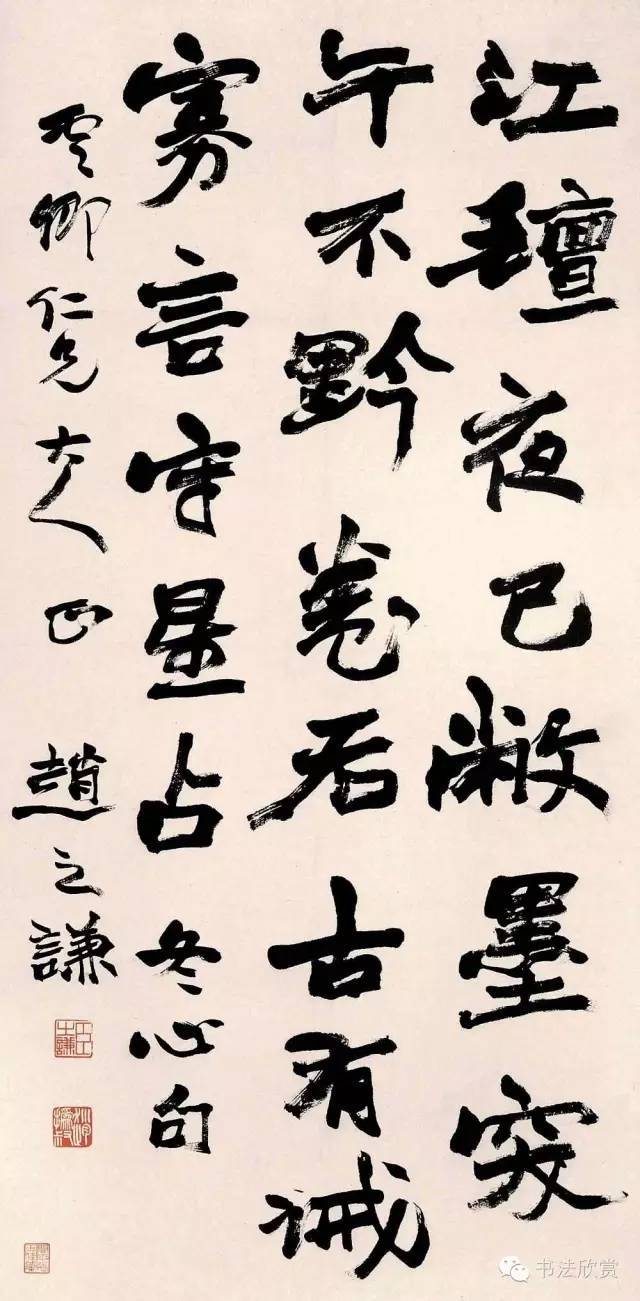 江氊夜已敝墨突
午不黔卷舌古有誡
寡言守星占 冬心句
雲卿仁兄大人正 趙之謙
书法欣赏